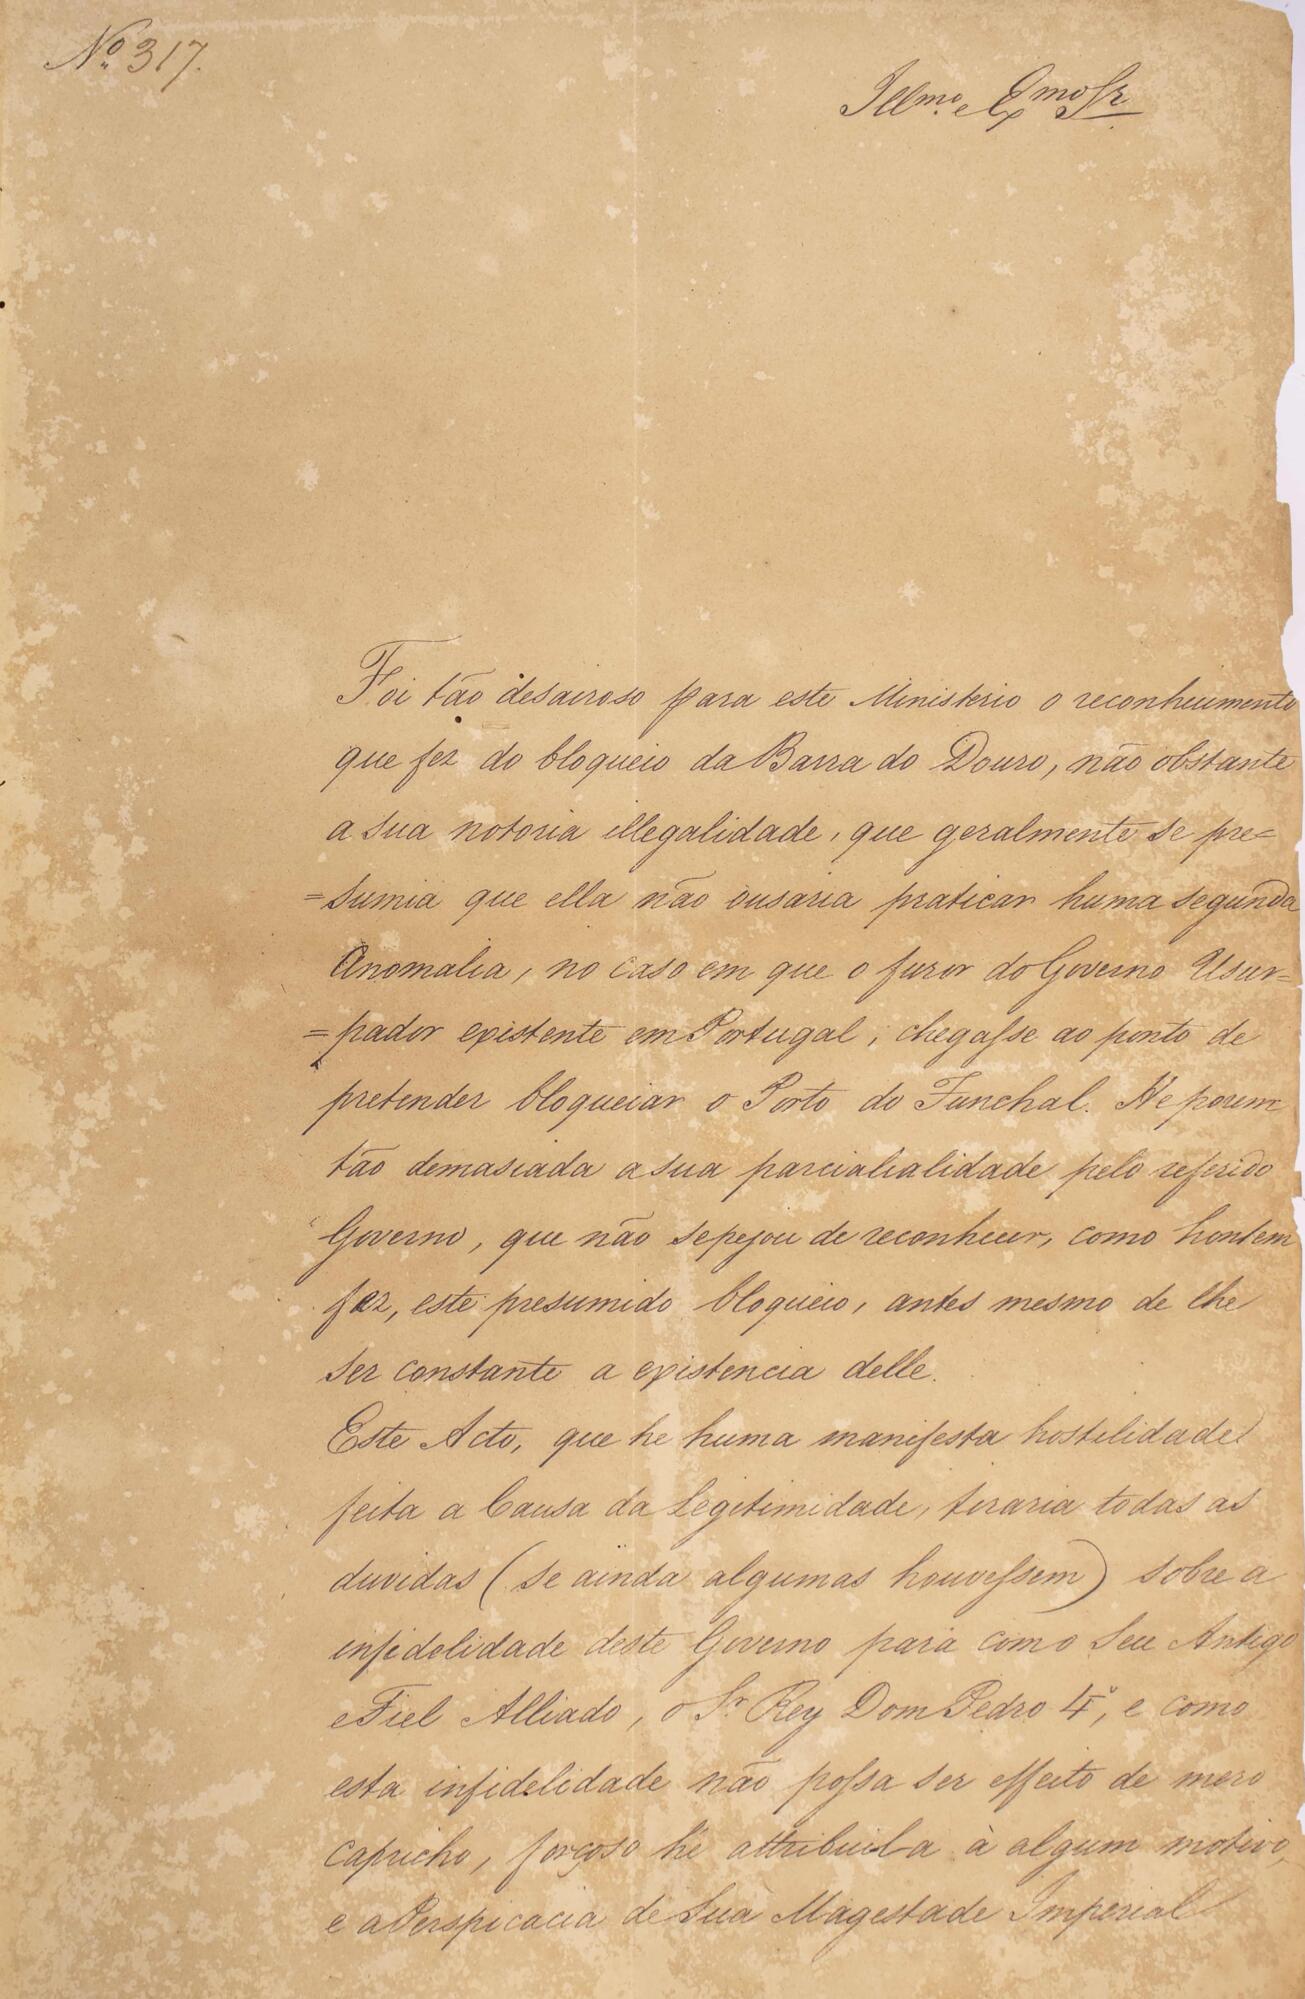 Nº 317.
Illmo. e Exmo Sr.
Foi tão desairoso para este Ministerio o reconhecimento
que fez do bloqueio da Barra do Douro, não obstante
a sua notoria illegalidade, que geralmente se pre=
=sumia que ella não ousaria praticar huma segunda
Anomalia, no caso em que o furor do Governo Usur=
=pador existente em Portugal, chegasse ao ponto de
pretender bloqueiar o Porto do Funchal. He porem
tão demasiada a sua parcialialidade pelo referido
Governo, que não se pejou de reconhecer, como hontem
fez, este presumido bloqueio, antes mesmo de lhe
ser constante a existencia delle.
Este Acto, que he huma manifesta hostilidade
feita a Causa da Legitimidade, tiraria todas as
duvidas (se ainda algumas houvessem) sobre a
infidelidade deste Governo para com o Seu Antigo
e Fiel Alliado, o Sr. Rey Dom Pedro 4º, e como
esta infidelidade não possa ser effeito de mero
capricho, forçoso hé attribuila à algum motivo,
e a Perspicacia de Sua Magestade Imperial